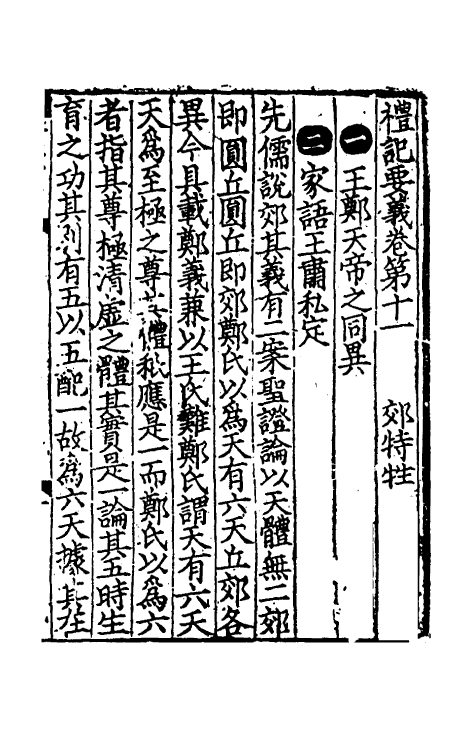 禮記要義卷第十一 郊特牲
一 王鄭天帝之同異
二 家語王肅私定
先儒說郊其義有二案聖證論以天體無二郊
即圓丘圓丘即郊鄭氏以為天有六天丘郊各
異今具載鄭義兼以王氏難鄭氏謂天有六天
天為至極之尊其體秪應是一而鄭氏以為六
者指其尊極清虛之體其實是一論其五時生
育之功其別有五以五配一故爲六天據其在